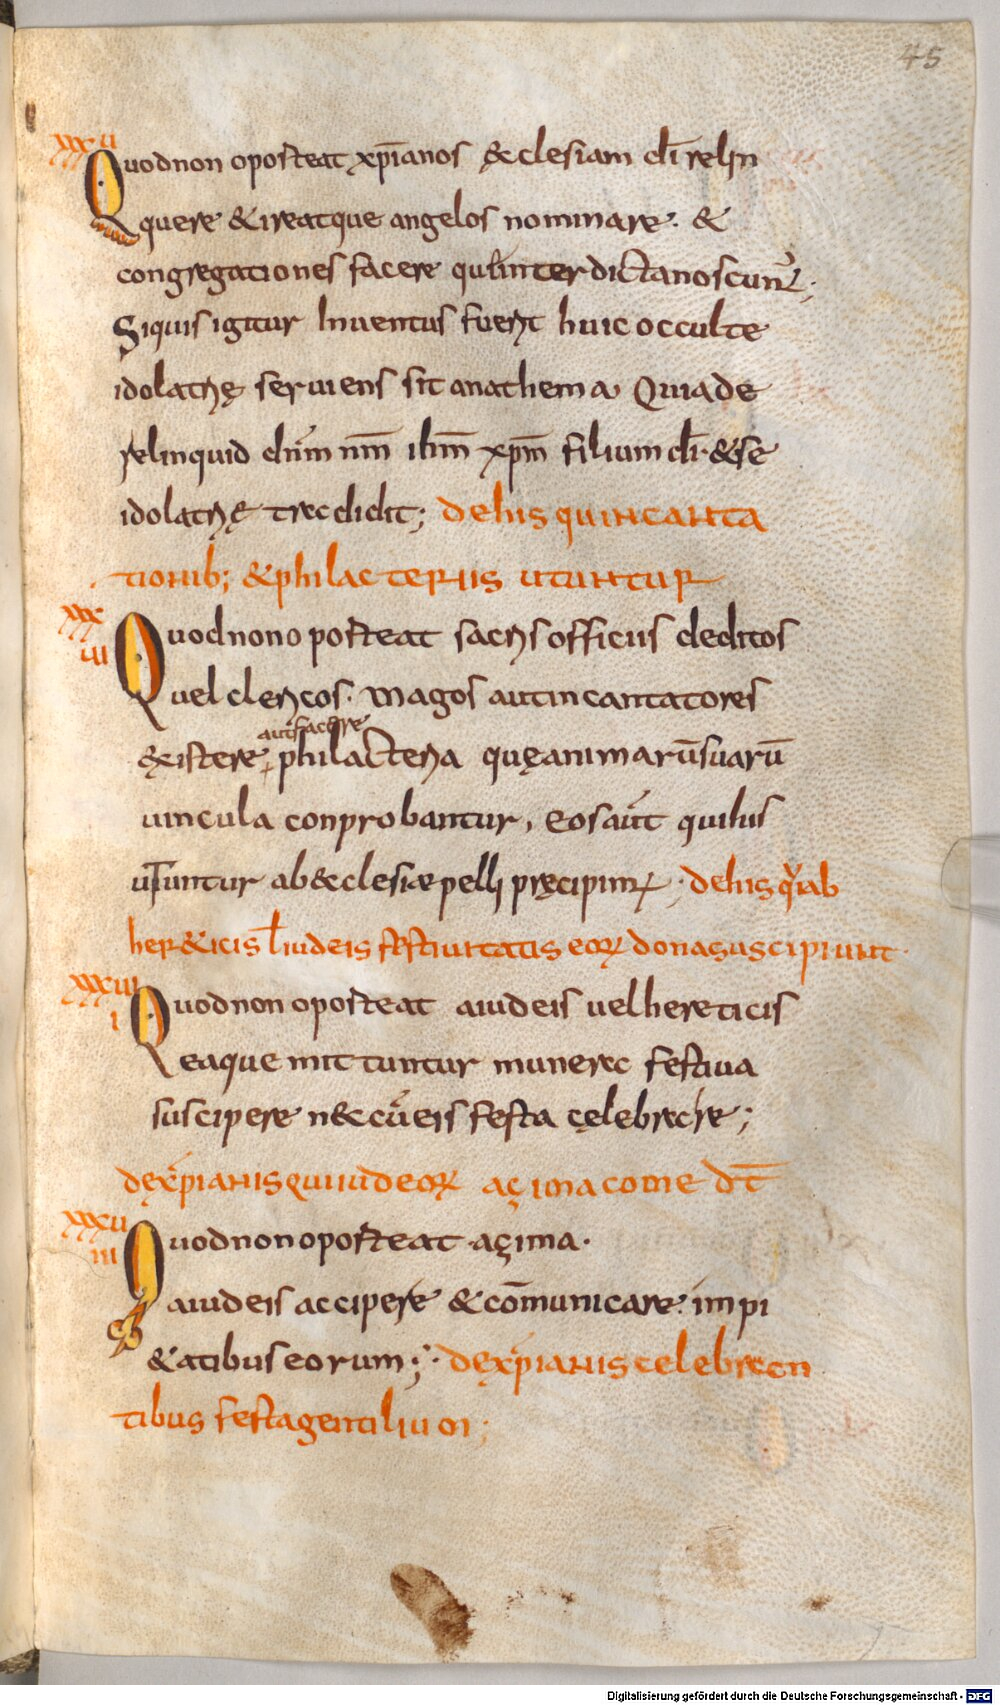 45
xxxv
Quod non oporteat xp̅ianos &clesiam di̅ relin
quere & ire atque angelos nominare. &
congregationes facere que interdicta noscunt̅;
Siquis igitur Inuentus fuerit huic occulte
idolatrię seruiens sit anathema Quia de
relinquid dn̅m nr̅m ih̅m xp̅m filium di̅. & se
idolatrię tradidit; de his qui incanta
tionib; & philacteriis utuntur
xxx
ui
Quod non oporteat sacris officiis deditos
uel clericos. magos aut incantatores
aut facere
existere philacteria quę animarū suarū
uincula conprobantur, eos aut̅ qui his
utuntur ab &clesiæ pelli pręcipim; de his qui ab
her&icis l̅ iudeis festiuitatis eor̅ dona suscipiunt.
xxxui
i
Quod non oporteat a iudeis uel hereticis
ea que mittuntur munera festiua
suscipere n&c cu̅ eis festa celebrare;
de xp̅ianis qui iudeor̅ açima comedt̅
xxxu
iii
Quod non oporteat açima.
a iudeis accipere & cōmunicare impi
&atibus eorum; de xp̅ianis celebran
tibus festa gentilium;
Digitalisierung gefördert durch die Deutsche Forschungsgemeinschaft - DFG